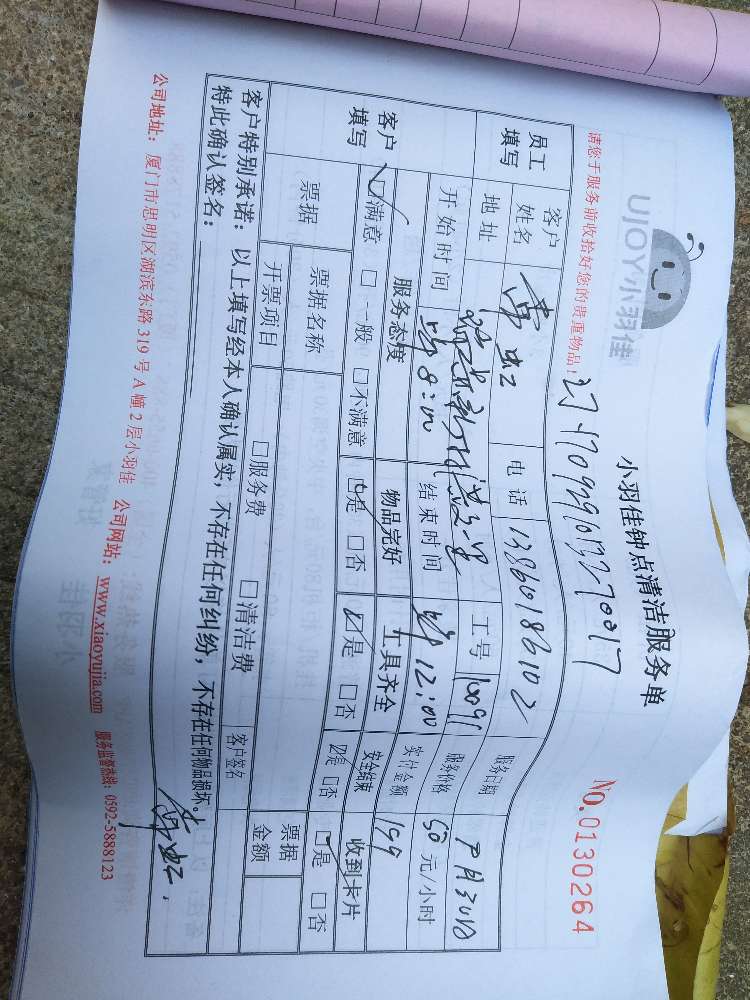 UJOY小羽佳
小羽佳钟点清洁服务单
No.0130264
请您于服务前收拾好您的贵重物品！
员工填写 客户姓名 电话 13860186102 服务日期
地址 工号 服务价格 50 元/小时
开始时间 8:00 结束时间 12:00 实付金额 199
客户填写 服务态度 物品完好 工具齐全 安全结束 收到卡片
☑满意 □一般 □不满意 ☑是 □否 ☑是 □否 ☑是 □否 ☑是 □否
票据 票据名称 票据金额
开票项目 □服务费 □清洁费 客户签名
客户特别承诺：以上填写经本人确认属实，不存在任何纠纷，不存在任何物品损坏。
特此确认签名：
公司地址：厦门市思明区湖滨东路319号A幢2层小羽佳 公司网站：www.xiaoyujia.com 服务监督热线：0592-5888123